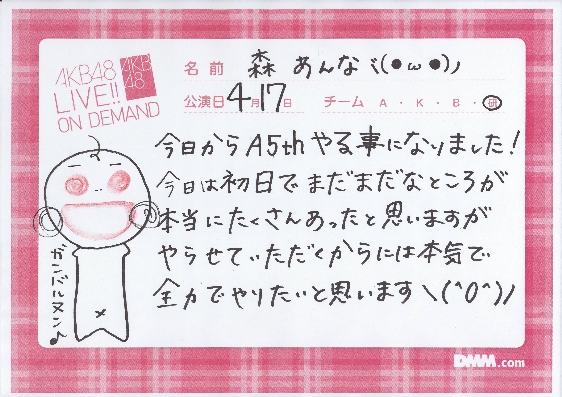 AKB48
LIVE!!
ON DEMAND
AKB
48
名前 森 あんなミ(●ω●)ノ
公演日 4月17日 チーム A・K・B・研
今日からA5thやる事になりました!
今日は初日でまだまだなところが
本当にたくさんあったと思いますが
やらせていただくからには本気で
全力でやりたいと思います\(^0^)ノ
ガンバルヌン♪
DMM.com